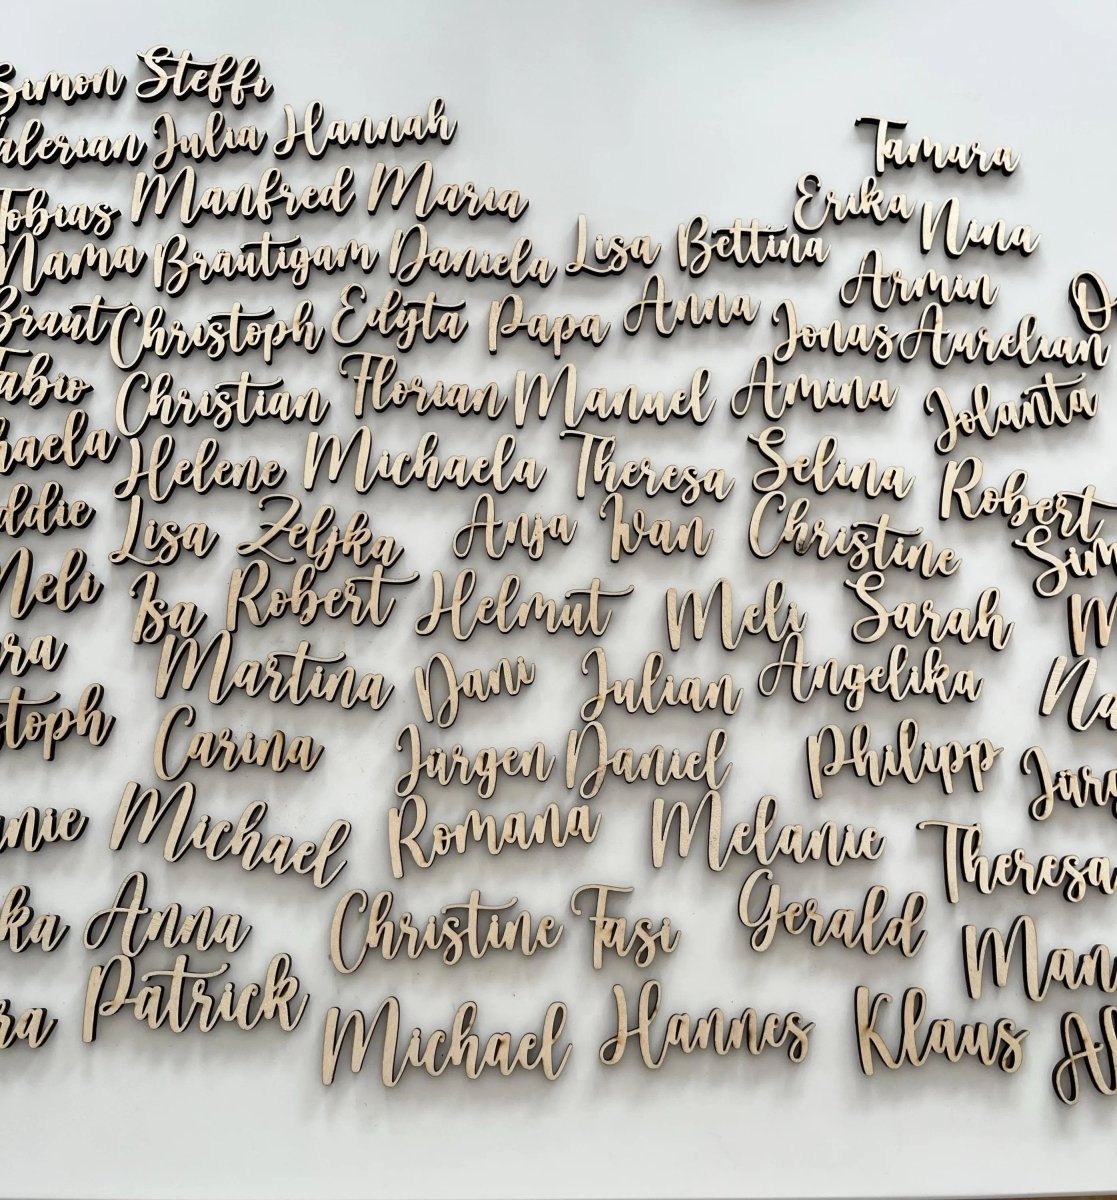 Simon Steffi
Valerian Julia Hannah
Tamara
Tobias Manfred Maria
Erika Nina
Mama Bräutigam Daniela Lisa Bettina
Armin
Braut Christoph Edyta Papa Anna
Jonas Aurelian
Fabio Christian Florian Manuel Amina Jolanta
haela Helene Michaela Theresa Selina Robert
ddie Lisa Zeljka Anja Ivan Christine Sim
Meli Isa Robert Helmut Meli Sarah
ra Martina Dani Julian Angelika Na
stoph Carina Jürgen Daniel Philipp Jürg
nie Michael Romana Melanie Theresa
ka Anna Christine Fasi Gerald Man
ra Patrick Michael Hannes Klaus